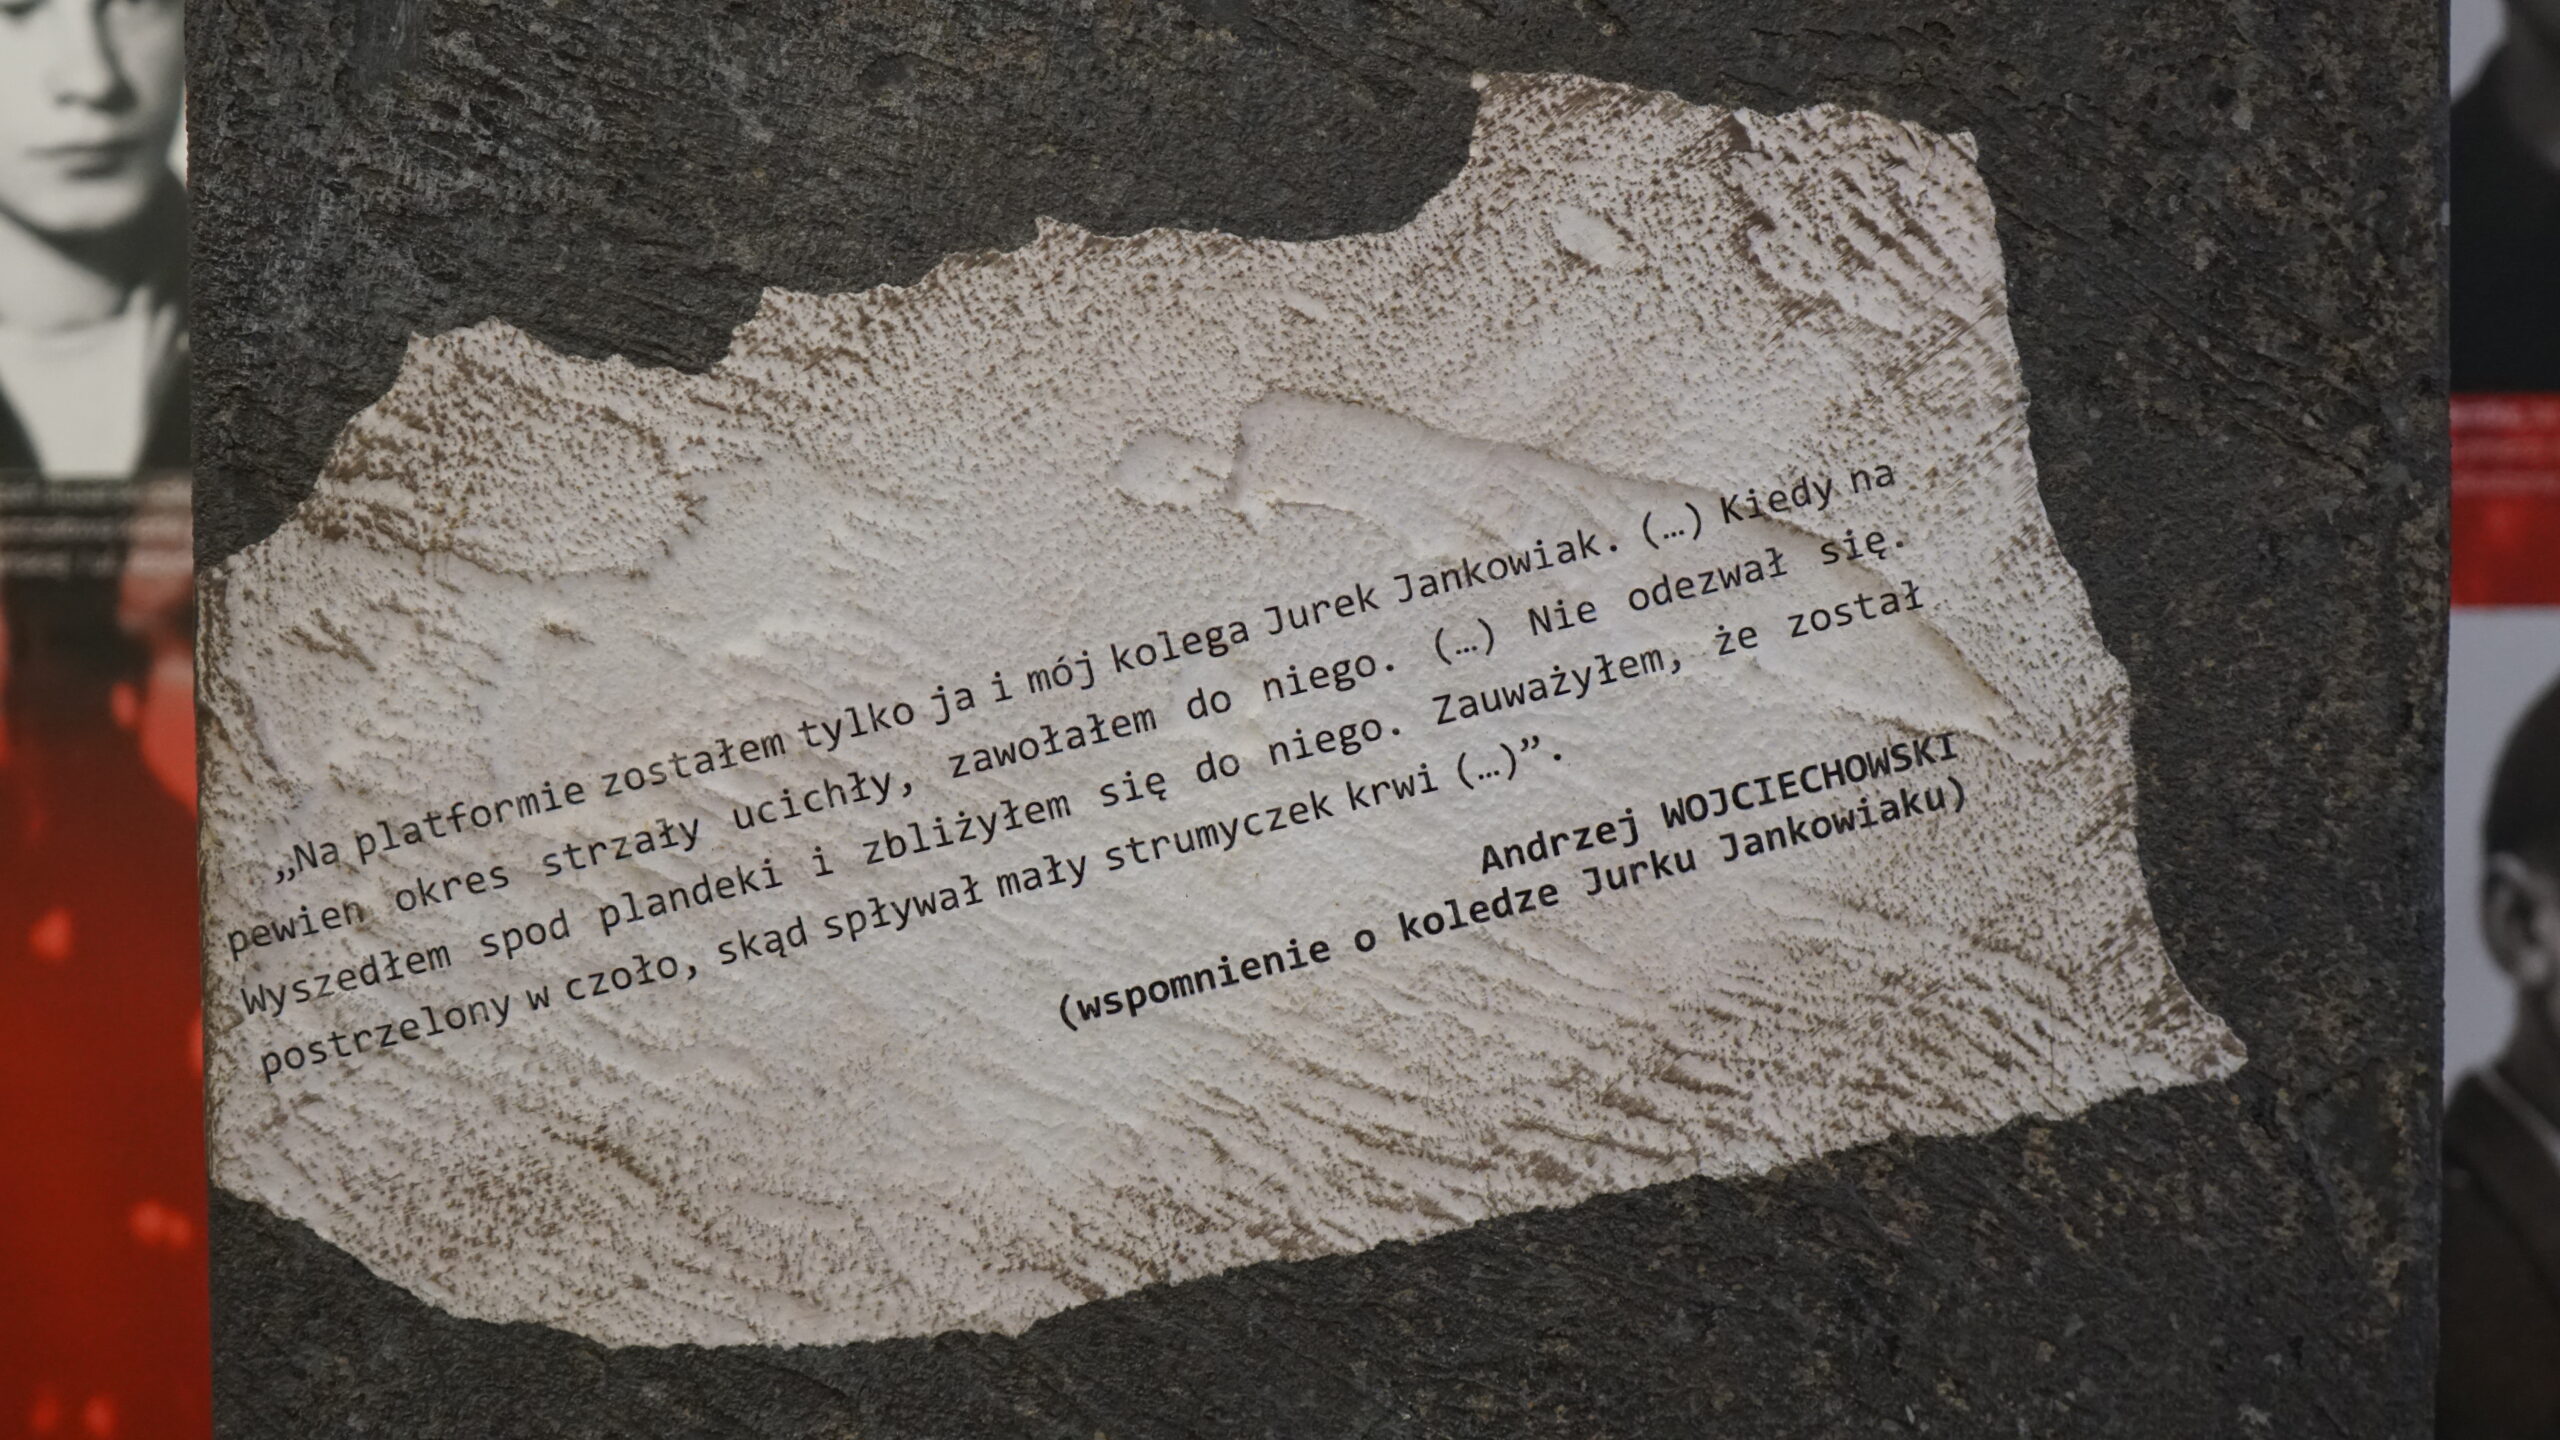 „Na platformie zostałem tylko ja i mój kolega Jurek Jankowiak. (…) Kiedy na
pewien okres strzały ucichły, zawołałem do niego. (…) Nie odezwał się.
Wyszedłem spod plandeki i zbliżyłem się do niego. Zauważyłem, że został
postrzelony w czoło, skąd spływał mały strumyczek krwi (…)”.
Andrzej WOJCIECHOWSKI
(wspomnienie o koledze Jurku Jankowiaku)